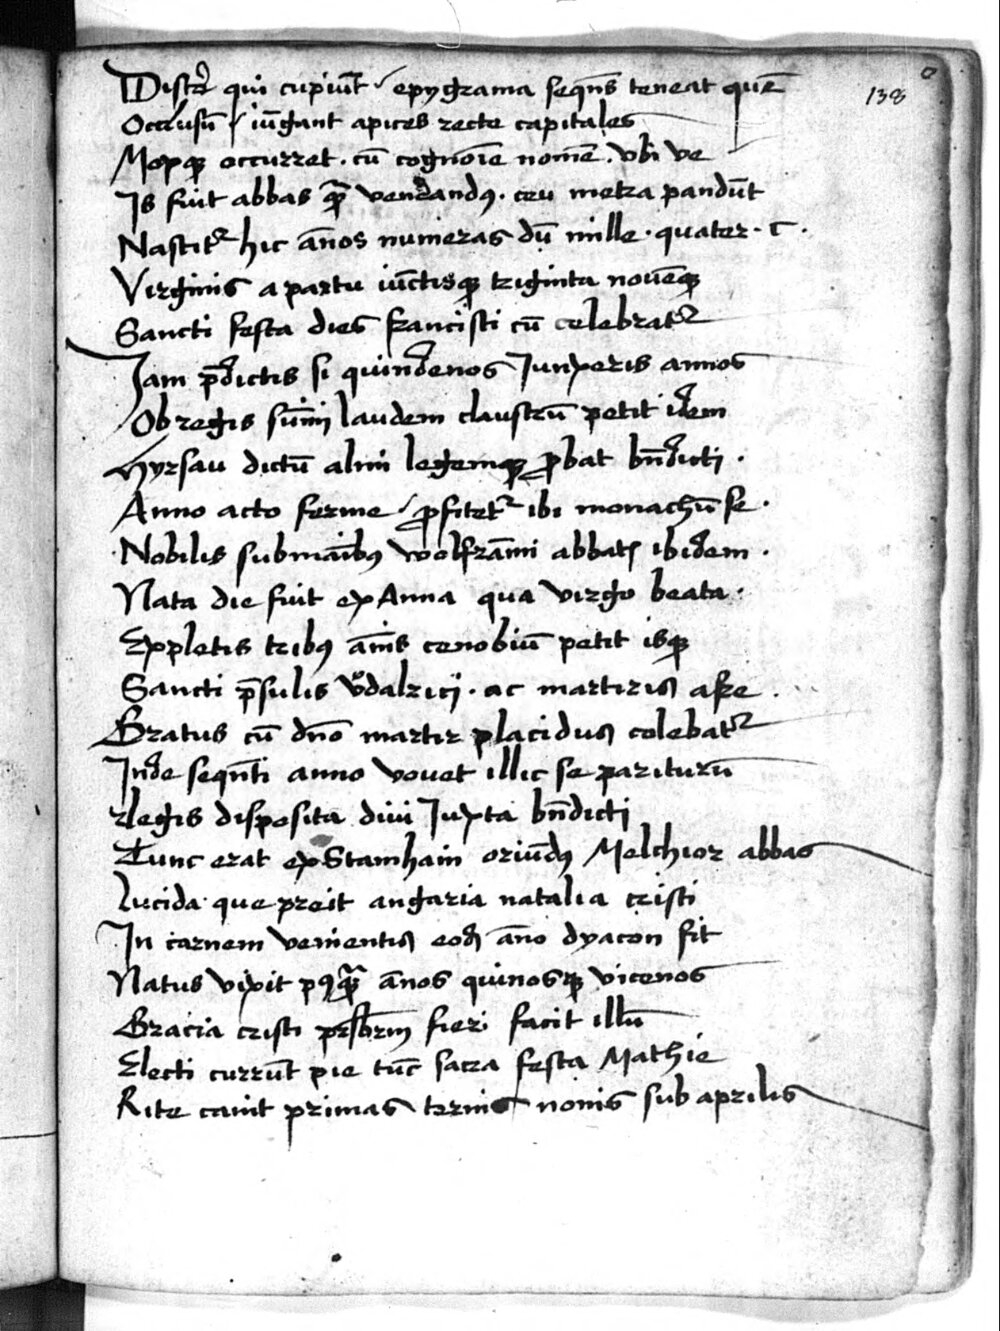 138
Discere qui cupiunt epygrama sequēs teneat quē
Occlusū iūgant apices recte capitales
Moxq occurret . cū cognoīe nomē . vbi ve
Is fuit abbas q̄ venerandꝰ . ceu metra pandūt
Nascitr hic ānos numeras dū mille . quater . C .
Virginis a partu iūctisq triginta nouēq
Sancti festa dies francisci cū celebratr
Iam p̄dictis si quindenos Iunxeris annos
Ob regis sūmi laudem claustrū petit idem
Hyrsau dictū almi legemq ꝓbat bn̄dicti .
Anno acto ferme ꝓfitetr ibi monachū se .
Nobilis submāibꝰ wolframi abbatis ibidem .
Nata die fuit ex Anna qua virgo beata .
Expletis tribꝰ ānis cenobiū petit isq
Sancti p̄sulis vͦdalrici . ac martiris afre .
Gratus cū dn̄o martir placidus colebatr
Inde seqn̄ti anno vouet illic se pariturū
Legis disposita diui Iuxta bn̄dicti
Tunc erat ex Stamhain oriūdꝰ Melchior abbas
Lucida que preit angaria natalia cristi
In carnem venientis eodē āno dyacon fit
Natus vixit pꝰq̄ ānos quinosq vicenos
Gracia cristi prsbrm fieri facit illū
Electi currūt pie tūc sacra festa Mathie
Rite canit primas ternis nonis sub aprilis